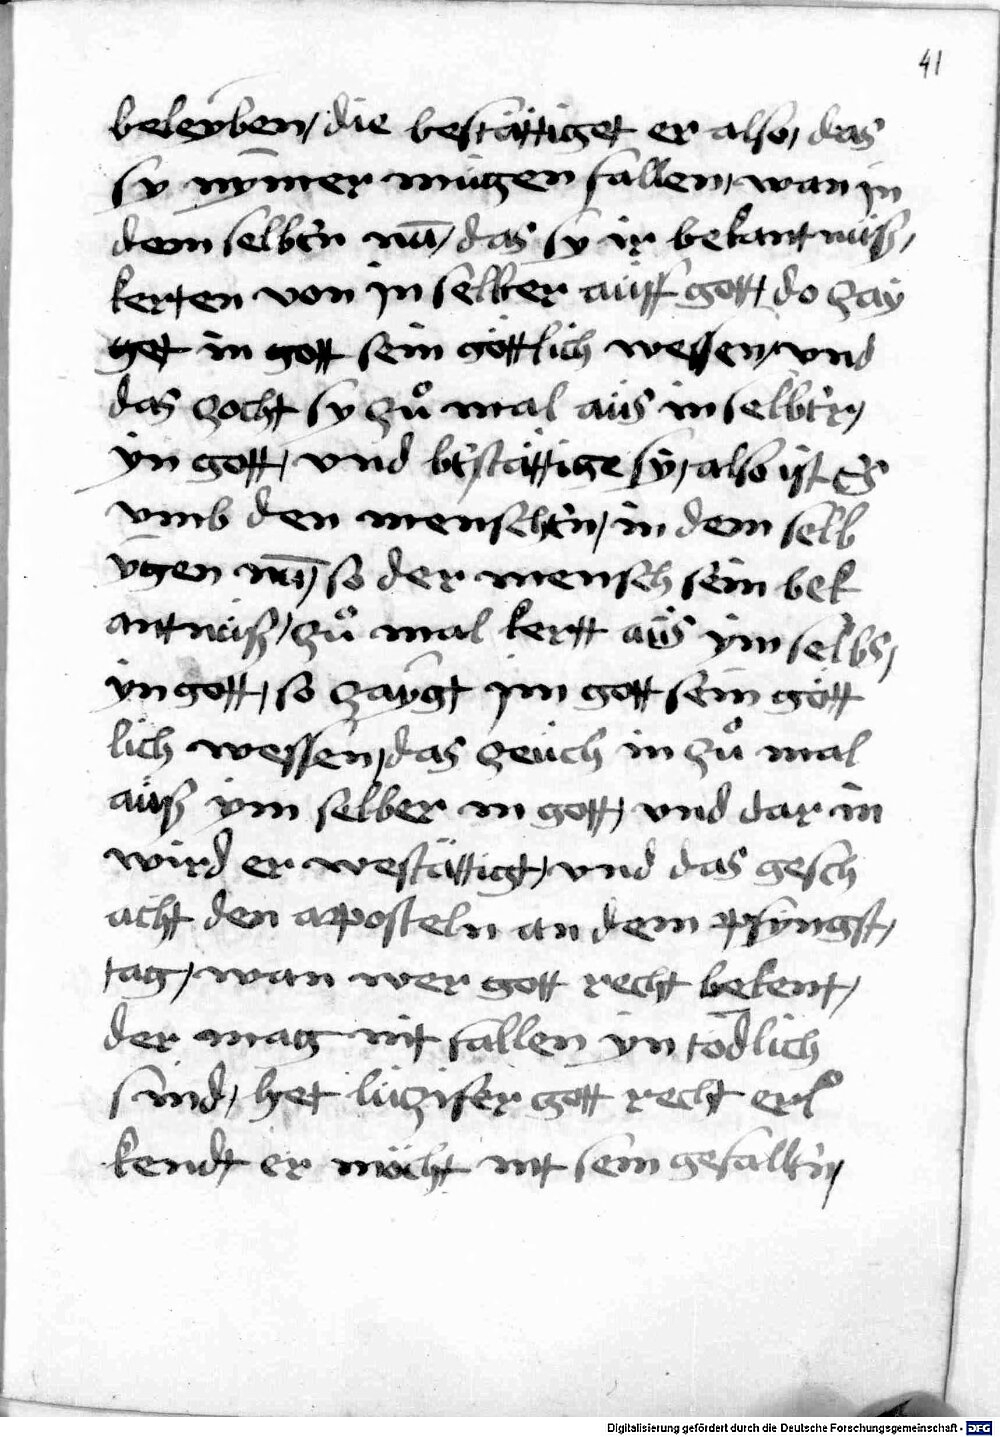 41
beleyben, die bestättiget er also, das
sy nȳmer mügen fallen, wan in
dem selben nu̅, das sy ir bekantnüß,
kerten von in selber aüff gott, do zay
get in gott sein göttlich wessen, vnd
das zocht sy zů mal aüs in selber,
yn gott, vnd bestättige sy, also ist es
vmb den menschen, in dem selb
ygen nu̅, so der mensch sein bek
antnüß, zů mal kertt aüs ym selbs,
yn gott, so zaygt im gott sein gött
lich wessen, das zeüch in zů mal
aüß ym selber in gott, vnd dar in
wird er westättigt, vnd das gesch
acht den apposteln an dem pfyngst,
tag, wan wer gott recht bekent,
der mag nit fallen yn tödlich
sünd, het lüzifer gott recht er
kendt er möcht nit sein gefallen,
Digitalisierung gefördert durch die Deutsche Forschungsgemeinschaft - DFG